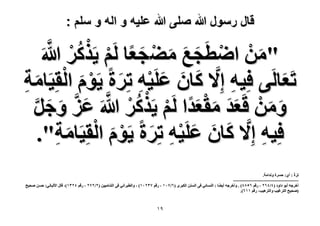 قال رسول الله صلى الله عليه و اله و سلم :
"مَنْ اضْطَجَعَ مَضْجَعًا لَمْ يَذْكُرْ اللَّهَ
تَعَالَى فِيهِ إِلَّا كَانَ عَلَيْهِ تِرَةً يَوْمَ الْقِيَامَةِ
وَمَنْ قَعَدَ مَقْعَدًا لَمْ يَذْكُرْ اللَّهَ عَزَّ وَجَلَّ
فِيهِ إِلَّا كَانَ عَلَيْهِ تِرَةً يَوْمَ الْقِيَامَةِ".
ترة : أى: حسرة وندامة.
أخرجه أبو داود (٢٦٤/٤ ، رقم ٤٨٥٦) . وأخرجه أيضًا : النسائى فى السنن الكبرى (١٠٧/٦ ، رقم ١٠٢٣٧) ، والطبرانى فى الشاميين (٢٧٢/٢ ، رقم ١٣٢٤). قال الألبانى: حسن صحيح
(صحيح الترغيب والترهيب، رقم ٦١١).
١٩